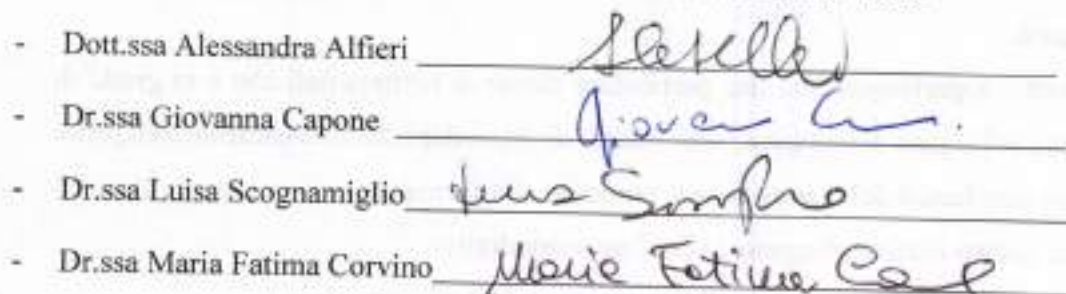 - Dott.ssa Alessandra Alfieri
- Dr.ssa Giovanna Capone Giovan
- Dr.ssa Luisa Scognamiglio Luisa
- Dr.ssa Maria Fatima Corvino Maria Fatima